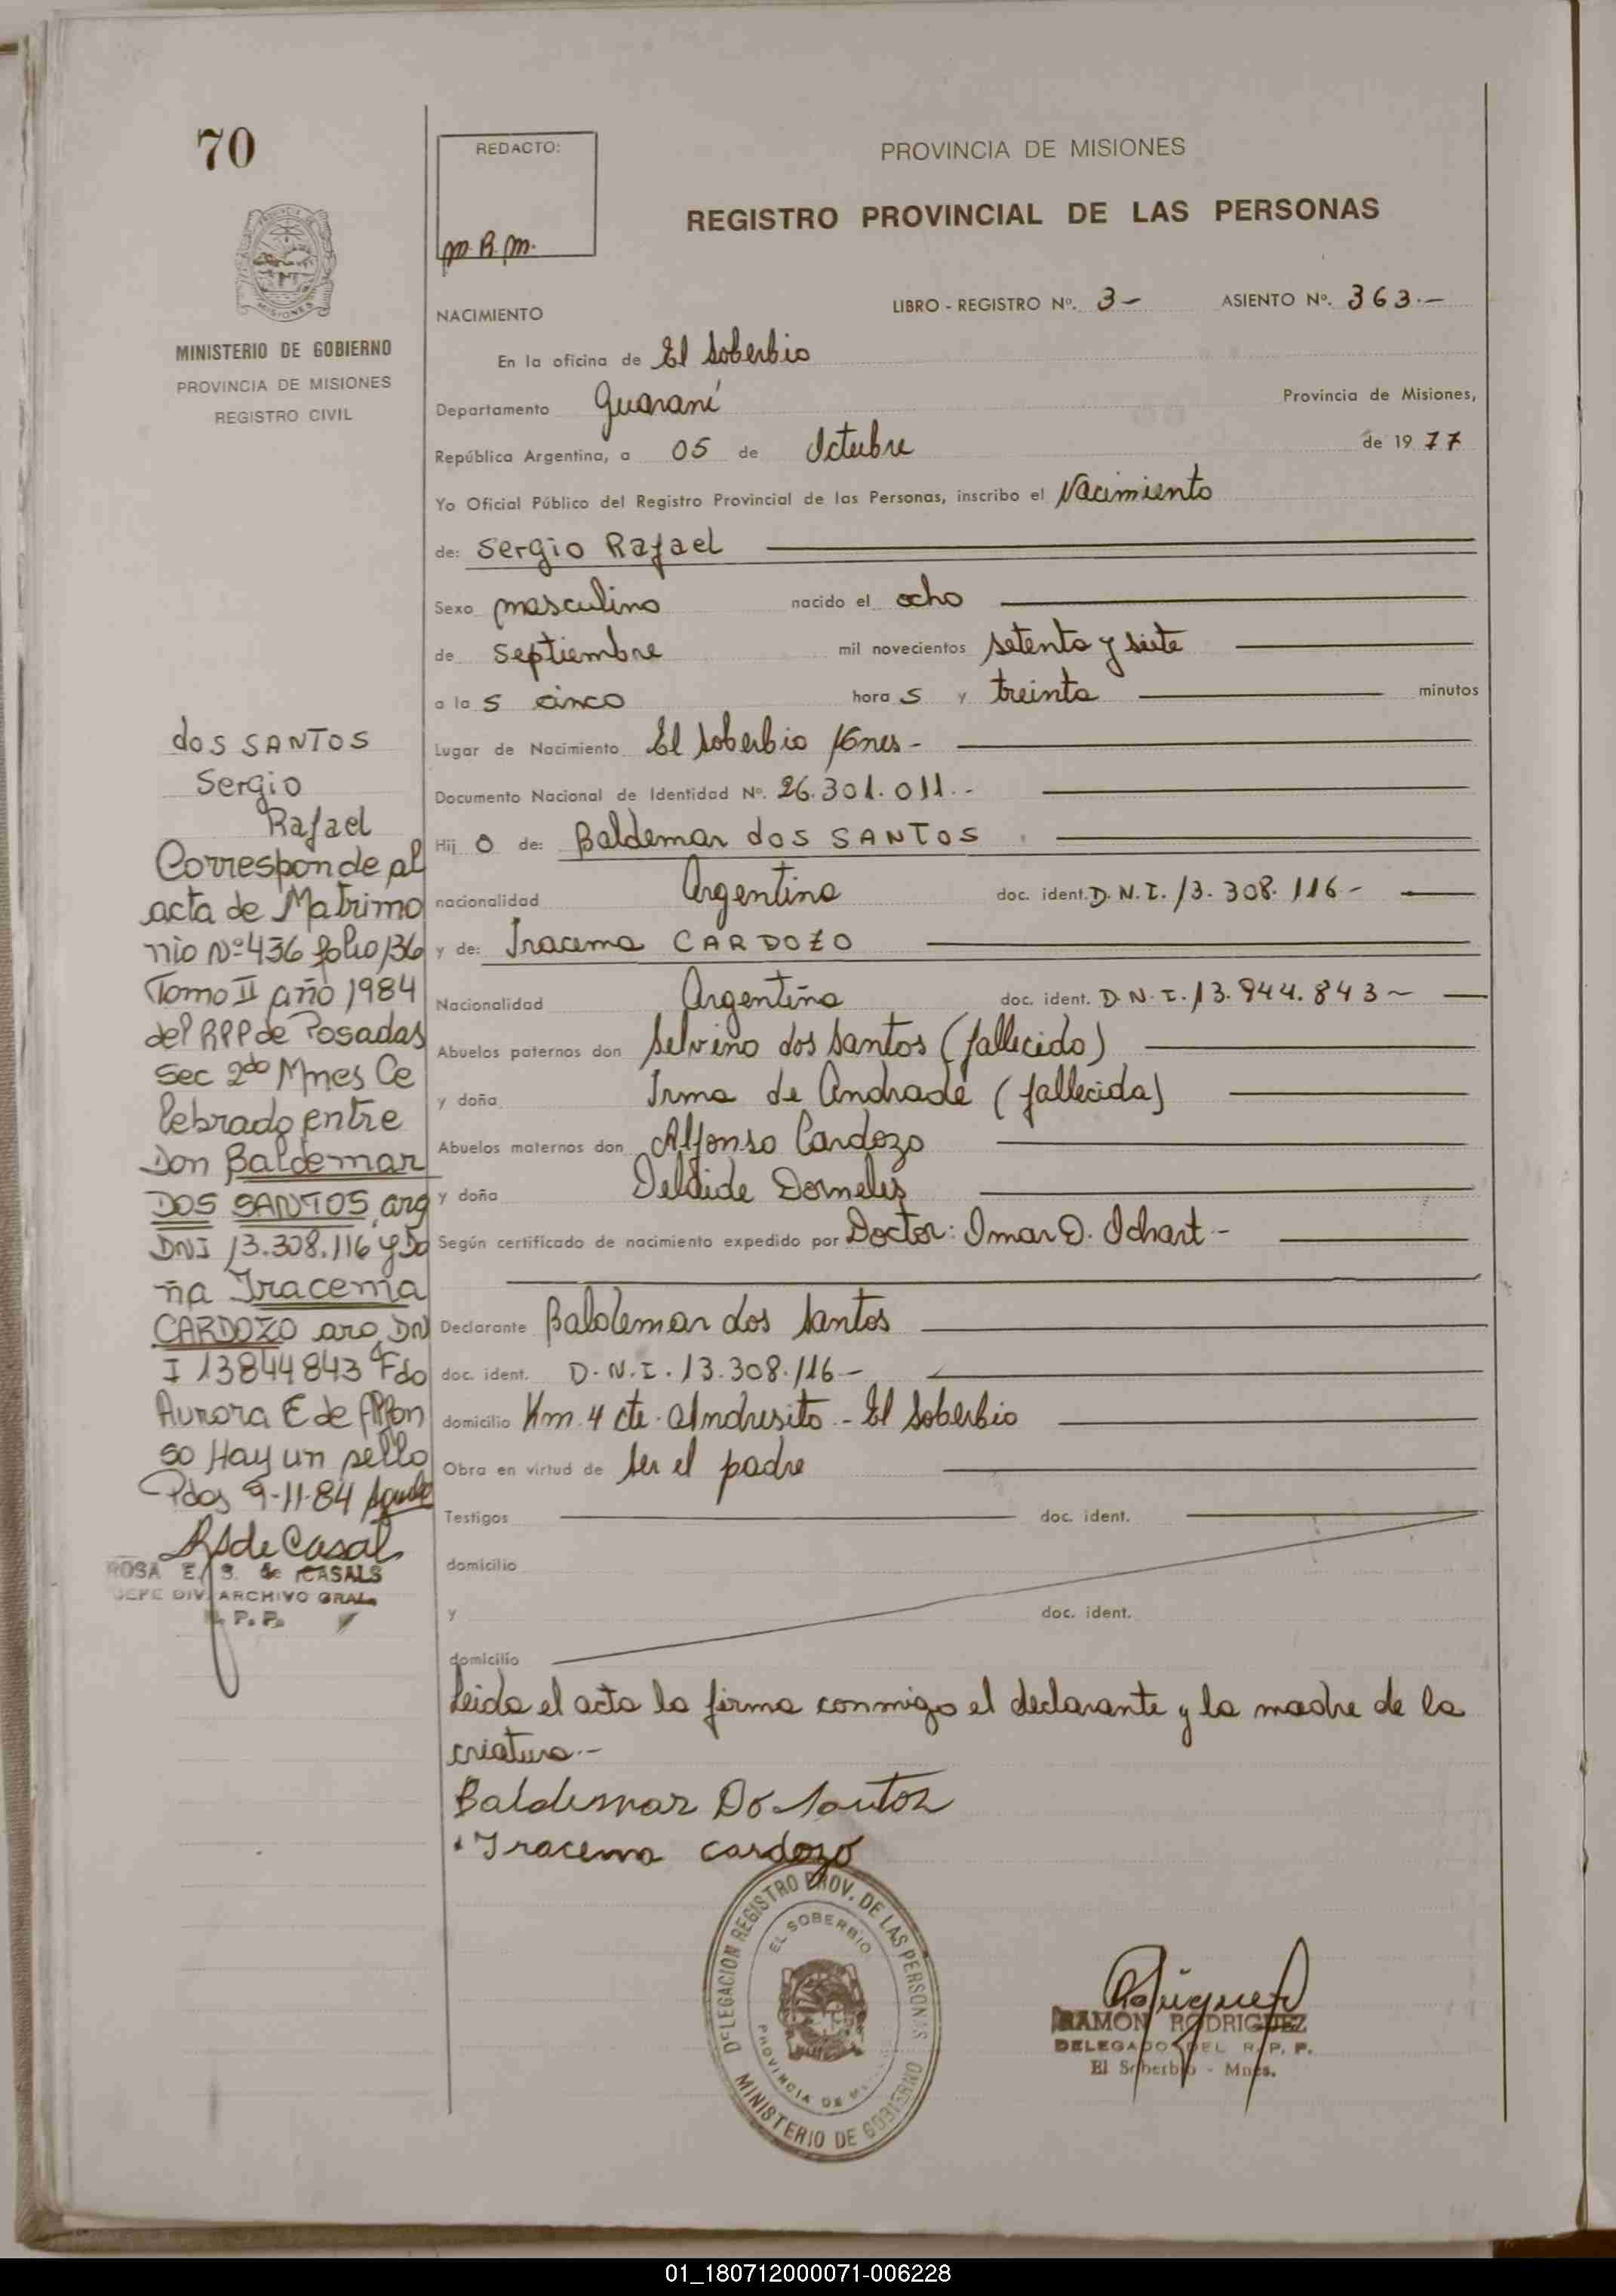 70
REDACTO:
m.R.m.
PROVINCIA DE MISIONES
REGISTRO PROVINCIAL DE LAS PERSONAS
MINISTERIO DE GOBIERNO
PROVINCIA DE MISIONES
REGISTRO CIVIL
NACIMIENTO
LIBRO - REGISTRO Nº. 3- ASIENTO Nº. 363.-
En la oficina de El Soberbio
Departamento Guaraní Provincia de Misiones,
República Argentina, a 05 de Octubre de 1977
Yo Oficial Público del Registro Provincial de las Personas, inscribo el Nacimiento
de: Sergio Rafael
Sexo masculino nacido el ocho
de septiembre mil novecientos setenta y siete
a la s cinco hora s y treinta minutos
Lugar de Nacimiento El Soberbio Mnes-
Documento Nacional de Identidad Nº. 26.301.011.-
Hij o de: Baldemar dos SANTOS
nacionalidad Argentina doc. ident. D.N.I. 13.308.116-
y de: Iracema CARDOZO
Nacionalidad Argentina doc. ident. D.N.I. 13.944.843-
Abuelos paternos don Selvino dos Santos (fallecido)
y doña Irma de Andrade (fallecida)
Abuelos maternos don Alfonso Cardozo
y doña Delaide Dorneles
Según certificado de nacimiento expedido por Doctor: Omar D. Ochart-
Declarante Baldemar dos Santos
doc. ident. D.N.I. 13.308.116-
domicilio Km. 4 cte. Andresito - El Soberbio
Obra en virtud de ser el padre
Testigos doc. ident.
domicilio
y doc. ident.
domicilio
Leida el acta la firma conmigo el declarante y la madre de la
criatura.-
Baldemar Do Santos
Iracema cardozo
dos SANTOS
Sergio
Rafael
Corresponde al
acta de Matrimo
nio Nº 436 folio 136
Tomo II año 1984
del RPP de Posadas
Sec 2do Mnes Ce
lebrado entre
Don Baldemar
DOS SANTOS arg
DNI 13.308.116 y Do
ña Iracema
CARDOZO arg DN
I 13844843 Fdo
Aurora E de Alfon
so Hay un sello
Pdas 9-11-84
RSde Casals
ROSA E. S. de CASALS
JEFE DIV. ARCHIVO GRAL.
P. P.
DELEGACION REGISTRO PROV. DE LAS PERSONAS
EL SOBERBIO
PROVINCIA DE
MINISTERIO DE GOBIERNO
RAMON RODRIGUEZ
DELEGADO DEL R. P. P.
El Soberbio - Mnes.
01_180712000071-006228